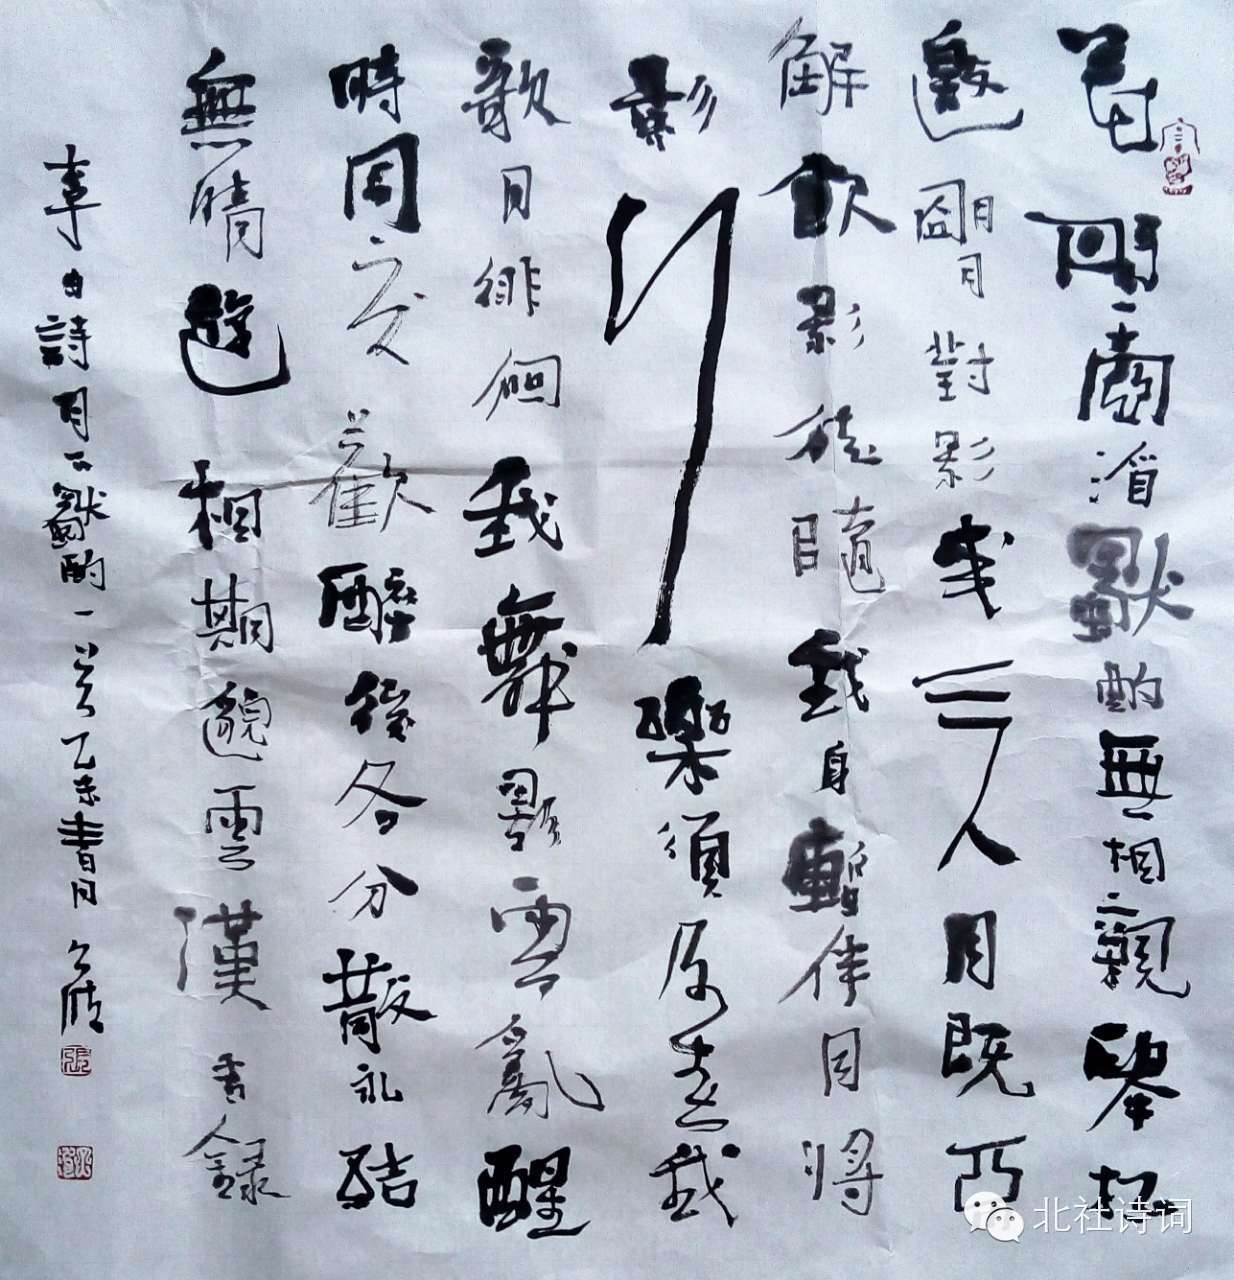 花間一壺酒獨酌無相親舉杯
邀明月對影成三人月既不
解飲影徒隨我身暫伴月將
影行樂須及春我
歌月徘徊我舞影零亂醒
時同交歡醉後各分散永結
無情遊相期邈雲漢 書錄
李白詩月下獨酌一首乙未春月
北社诗词